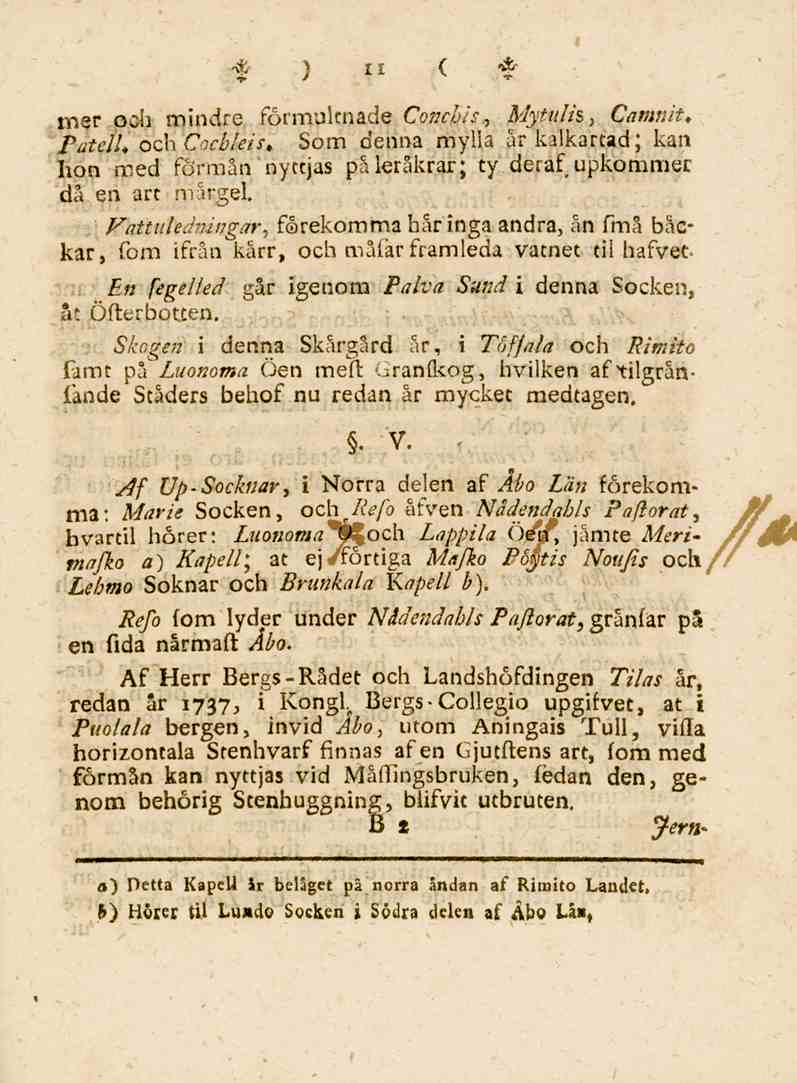 ) 11 (
mer och mindre förmultnade Conchis, Mytulis, Camnit.
Patell. och Cochleis. Som denna mylla är kalkartad; kan
hon med förmån nyttjas på leråkrar; ty deraf upkommer
då en art märgel.
Vattuledningar, förekomma här inga andra, än ſmå bäc-
kar, ſom ifrån kärr, och måſar framleda vatnet til hafvet.
En ſegelled går igenom Palva Sund i denna Socken,
åt Öſterbotten.
Skogen i denna Skärgård är, i Töfſala och Rimito
ſamt på Luonoma Öen meſt Granſkog, hvilken af tilgrän-
ſande Städers behof nu redan är mycket medtagen.
§. V.
Af Up-Socknar, i Norra delen af Åbo Län förekom-
ma: Marie Socken, och Reſo äfven Nådendahls Paſtorat,
hvartil hörer: Luonoma och Lappila Öen, jämte Meri-
maſko a) Kapell; at ej förtiga Maſko Pöytis Nouſis och
Lehmo Soknar och Brunkala Kapell b).
Reſo ſom lyder under Nådendahls Paſtorat, gränſar på
en ſida närmaſt Åbo.
Af Herr Bergs-Rådet och Landshöfdingen Tilas är,
redan år 1737, i Kongl. Bergs-Collegio upgifvet, at i
Puolala bergen, invid Åbo, utom Aningais Tull, viſſa
horizontala Stenhvarf finnas af en Gjutſtens art, ſom med
förmån kan nyttjas vid Mäſſingsbruken, ſedan den, ge-
nom behörig Stenhuggning, blifvit utbruten.
B 2 Jern-
a) Detta Kapell är beläget på norra ändan af Rimito Landet.
b) Hörer til Lundo Socken i Södra delen af Åbo Län,